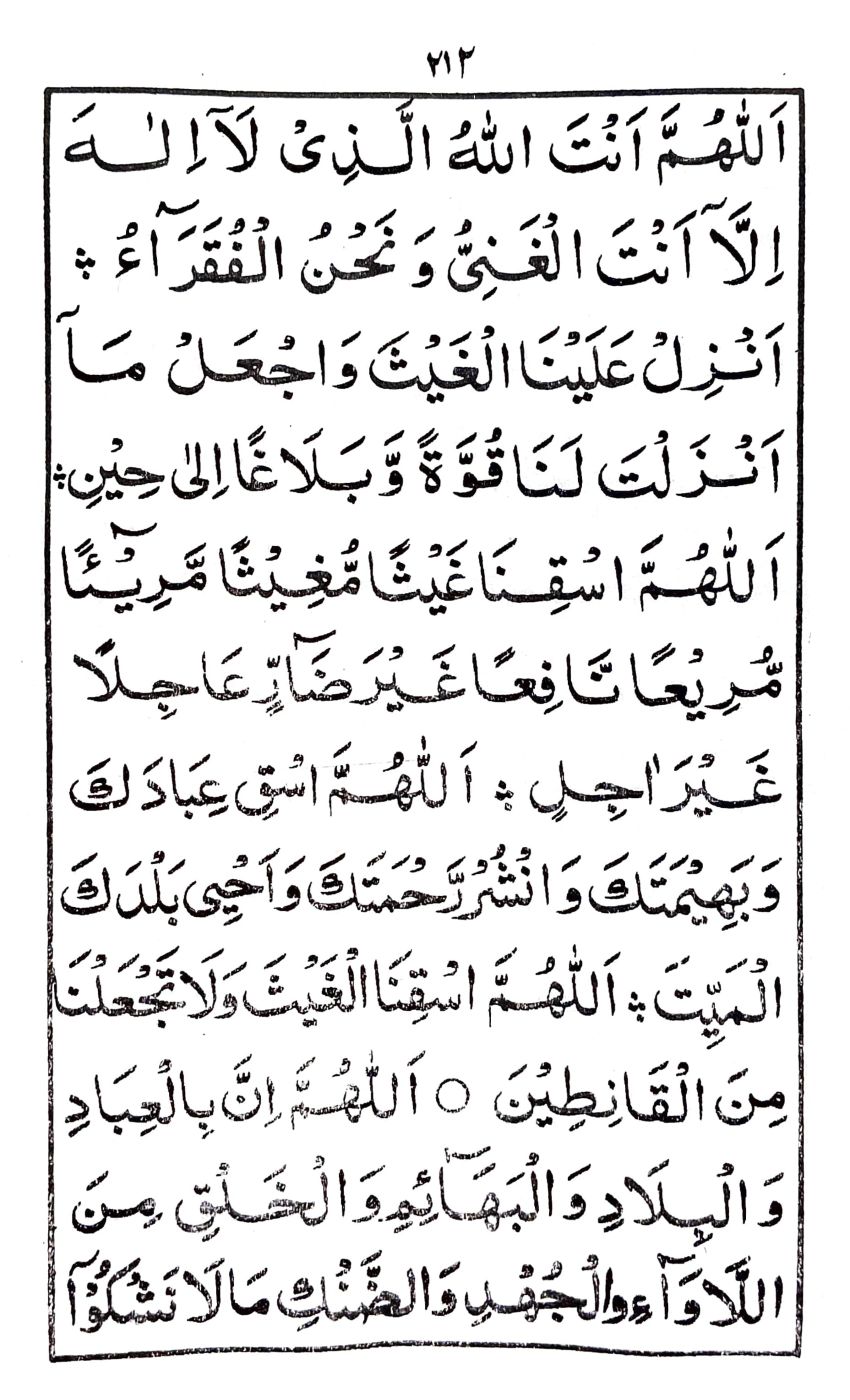 ٢١٢
اَللّٰهُمَّ اَنْتَ اللّٰهُ الَّذِیْ لَآ اِلٰـهَ
اِلَّآ اَنْتَ الْغَنِیُّ وَ نَحْنُ الْفُقَرَآءُ ؞
اَنْزِلْ عَلَیْنَا الْغَیْثَ وَاجْعَلْ مَآ
اَنْزَلْتَ لَنَا قُوَّةً وَّبَلَاغًا اِلٰی حِیْنٍ ؞
اَللّٰهُمَّ اسْقِنَا غَیْثًا مُّغِیْثًا مَّرِیْٓئًا
مُّرِیْعًا نَّافِعًا غَیْرَ ضَآرٍّ عَاجِلًا
غَیْرَ اٰجِلٍ ؞ اَللّٰهُمَّ اسْقِ عِبَادَكَ
وَبَهِیْمَتَكَ وَانْشُرْ رَّحْمَتَكَ وَاَحْیِی بَلْدَكَ
الْمَیِّتَ ؞ اَللّٰهُمَّ اسْقِنَا الْغَیْثَ وَلَا تَجْعَلْنَا
مِنَ الْقَانِطِیْنَ ○ اَللّٰهُمَّ اِنَّ بِالْعِبَادِ
وَالْبِلَادِ وَالْبَهَآئِمِ وَالْخَلْقِ مِنَ
اللَّاوَآءِ وَالْجُهْدِ وَالضَّنْكِ مَا لَا نَشْكُوْٓا